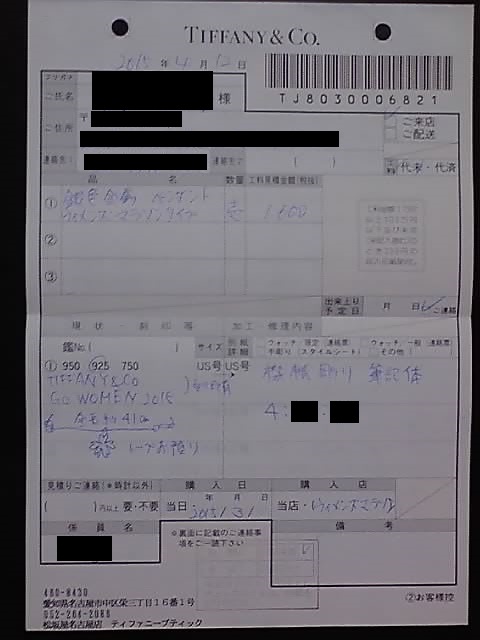 TIFFANY & CO.
2015 年 4 月 12 日
TJ8030006821
フリガナ
ご氏名
様
〒
ご住所
ご来店
ご配送
連絡先1
連絡先2
( )
代表・代済
品 名
数量
工料見積金額(税抜)
① 銀色金属 ペンダント
ウィメンズマラソンタイプ
壱
1,500
②
③
出来上り
予定日
月 日
ご連絡
現状・刻印等
加工・修理内容
鑑No.( )
サイズ
別紙
詳細
ウォッチ・限定 連絡票
ウォッチ・一般 連絡票
手彫り (スタイルシート)
その他 ( )
① 950 925 750
US号
US号
TIFFANY&CO
GO WOMEN 2015
刻印有
機械彫り 筆記体
4: :
全長約41cm
見積りご連絡(*時計以外)
購入日
購入店
( )円以上 要・不要
当日
年 月 日
2015/3/
当店・ウィメンズマラソン
係員名
*裏面に記載のご連絡事
項をご一読下さい
備考
460-8430
愛知県名古屋市中区栄三丁目16番1号
052-264-2088
松坂屋名古屋店 ティファニーブティック
②お客様控